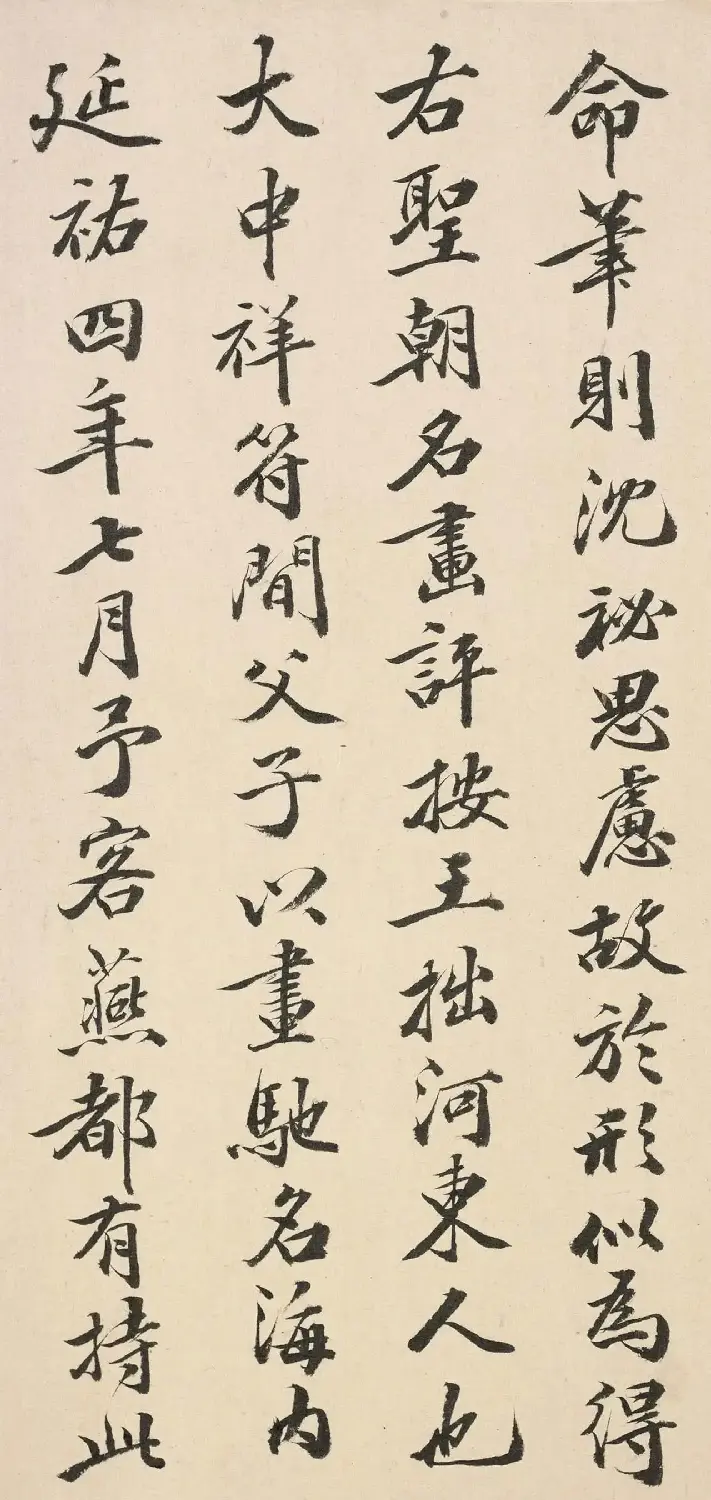 命筆則沈祕思慮故於形似為得
右聖朝名畫評按王拙河東人也
大中祥符間父子以畫馳名海內
延祐四年七月予客燕都有持此